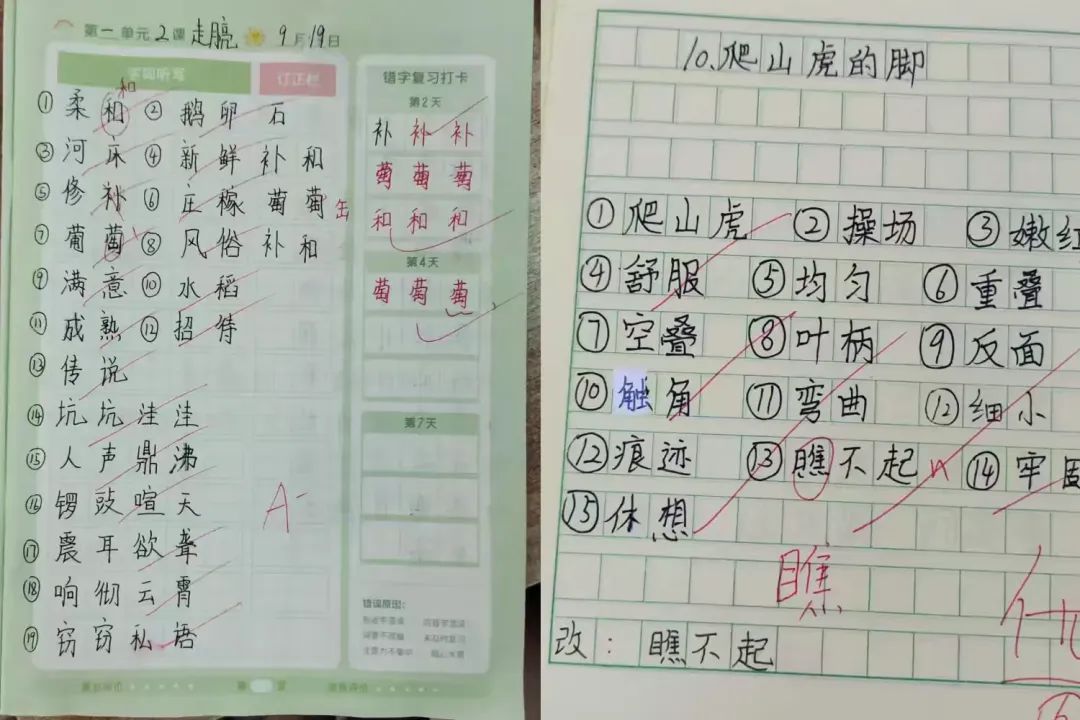 第一单元2课走月亮 9月19日
字词听写 订正栏
和
①柔和②鹅卵石
③河床④新鲜补和
⑤修补⑥庄稼葡萄
⑦葡萄⑧风俗补和
⑨满意⑩水稻
⑪成熟⑫招待
⑬传说
⑭坑坑洼洼
⑮人声鼎沸
⑯锣鼓喧天
⑰震耳欲聋
⑱响彻云霄
⑲窃窃私语
A-
错字复习打卡
第2天
补补补
萄萄萄
和和和
第4天
萄萄萄
第7天
错误原因:
10.爬山虎的脚
①爬山虎②操场③嫩红
④舒服⑤均匀⑥重叠
⑦空叠⑧叶柄⑨反面
⑩触角⑪弯曲⑫细小
⑫痕迹⑬瞧不起⑭牢固
⑮休想
瞧
优
改:瞧不起